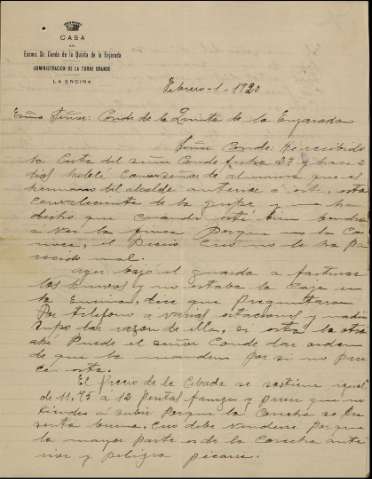 CASA
DEL
Excmo. Sr. Conde de la Quinta de la Enjarada
ADMINISTRACIÓN DE LA TORRE GRANDE
LA ENCINA
Febrero-1-1920
Exmo Señor: Conde de la Quinta de la Enjarada
Señor Conde: He recibido
la Carta del señor Conde fecha 29 y hace 2
dias hablé
hermano del alcalde
convaleciente de la gripe y me ha
dicho que cuando esté bien vendrá
a ver la finca Porque no la Co
noce, el Precio Creo no le ha pa
recido mal.
Ayer bajó el guarda a facturar
los y no estaba la Caja en
la Encina, dice que preguntaron
Por teléfono a varias estaciones y nadie
supo dar razon de ella, si está la otra
ahí Puede el señor Conde dar orden
de que la manden por si no pare
ce esta.
El Precio de la Cebada se sostiene igual
de 11,75 a 12 pesetas fanega y parece que no
tiende a subir porque la Cosecha se pre
senta buena, Creo debe venderse porque
la mayor parte es de la Cosecha ante
rior y peligra picarse.